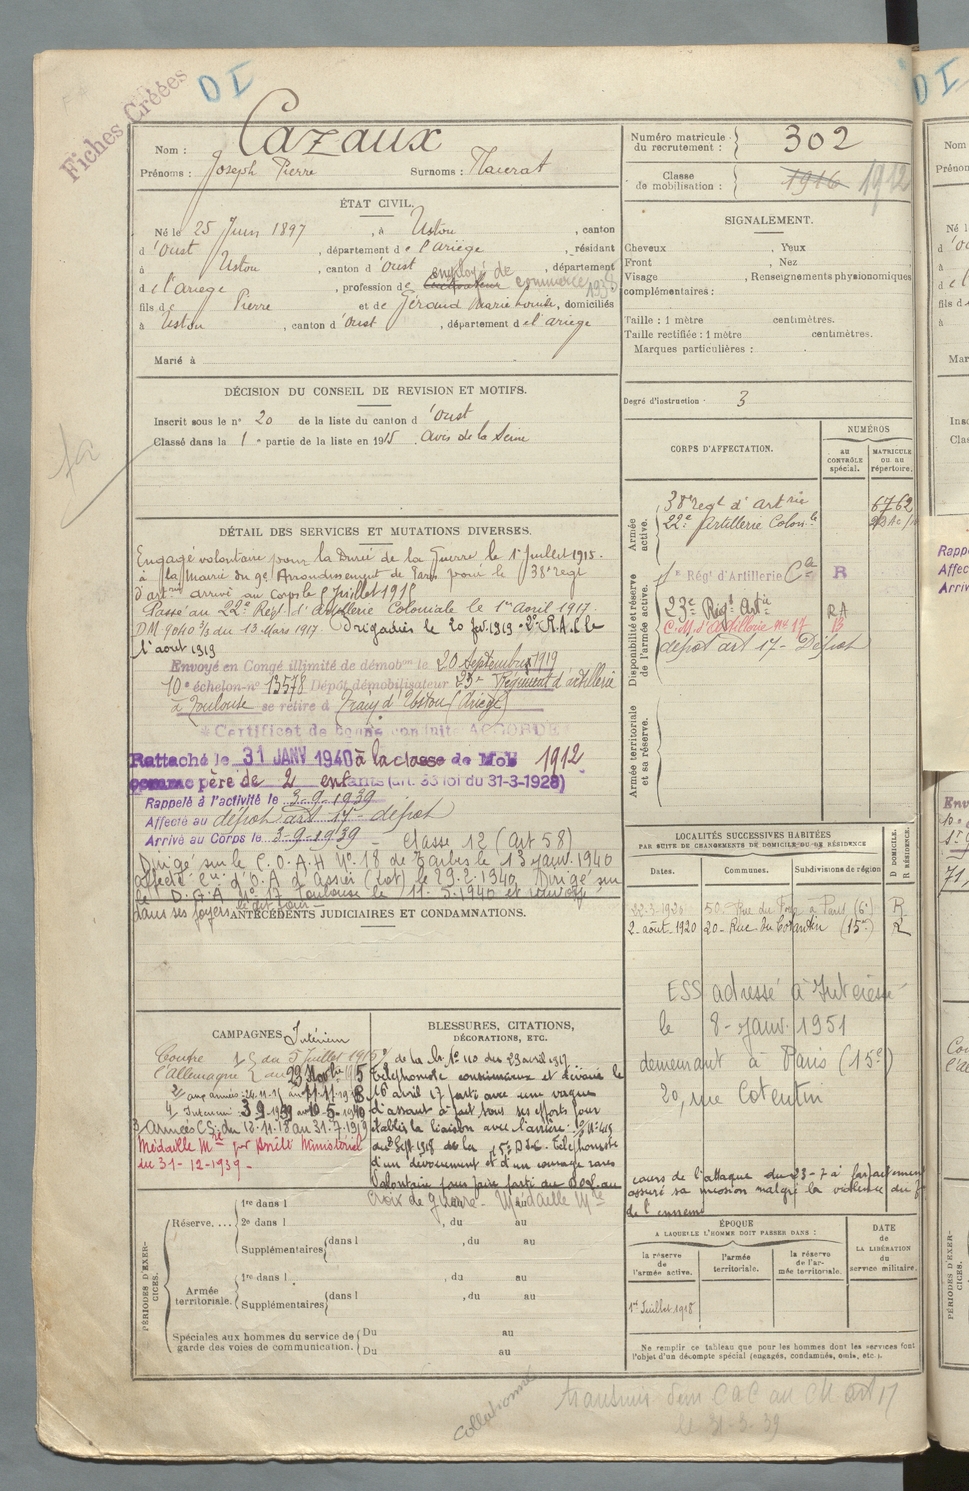 Fiches Créées
D I
Nom : Cazaux
Prénoms : Joseph Pierre Surnoms :
Numéro matricule du recrutement : 302
Classe de mobilisation : 1916 1912
ÉTAT CIVIL.
Né le 25 Juin 1897, à Ustou, canton
d'Oust, département de l'ariège, résidant
à Ustou, canton d'oust, département
de l'ariège, profession de employé de commerce 1938
fils de Pierre et de Géraud Marie Louise, domiciliés
à Ustou, canton d'oust, département de l'ariège
Marié à
SIGNALEMENT.
Cheveux , Yeux
Front , Nez
Visage , Renseignements physionomiques
complémentaires :
Taille : 1 mètre centimètres.
Taille rectifiée : 1 mètre centimètres.
Marques particulières :
Degré d'instruction : 3
DÉCISION DU CONSEIL DE REVISION ET MOTIFS.
Inscrit sous le n° 20 de la liste du canton d'Oust
Classé dans la 1e partie de la liste en 1915. Avis de la Seine
DÉTAIL DES SERVICES ET MUTATIONS DIVERSES.
Engagé volontaire pour la Durée de la Guerre le 1er Juillet 1915.
à la Mairie du 9e Arrondissement de Paris pour le 38e régt
d'artrie arrivé au corps le 5 Juillet 1915
Passé au 22e Régt d'Artillerie Coloniale le 1er Avril 1917.
D.M. 9040 3/3 du 13 Mars 1917. Brigadier le 20 fév. 1919. 2e R.A.C. le
1er août 1919
Envoyé en Congé illimité de démobon le 20 Septembre 1919
10e échelon n° 13578 Dépôt démobilisateur 23e Régiment d'artillerie
à Toulouse se retire à d'Ustou (Ariège)
Certificat de bonne conduite ACCORDÉ
Rattaché le 31 JANV 1940 à la classe de Mob 1912
comme père de 2 enfants (art. 58 loi du 31-3-1928)
Rappelé à l'activité le 3-9-1939
Affecté au dépôt art 17 - dépôt
Arrivé au Corps le 3-9-1939 - Classe 12 (Art 58)
Dirigé sur le C.O.A.H N° 18 de Tarbes le 13 Janv. 1940
affecté d'O.A d'Assier (Lot) le 29.2.1940 Dirigé sur
le D.G.A N° 17 Toulouse le 11.5.1940 et renvoyé
dans ses foyers le dit jour
CORPS D'AFFECTATION.
NUMÉROS
AU CONTRÔLE spécial.
MATRICULE ou au répertoire.
Armée active.
38e regt d'artrie 6762
22e Artillerie Colonle
Disponibilité et réserve de l'armée active.
1er Régt d'Artillerie Cle R
23e Régt Artie RA
C.M. d'Artillerie n° 17 B
dépôt art 17 - Dépôt
Armée territoriale et sa réserve.
LOCALITÉS SUCCESSIVES HABITÉES
PAR SUITE DE CHANGEMENTS DE DOMICILE OU DE RÉSIDENCE
Dates. Communes. Subdivisions de région D DOMICILE. R RÉSIDENCE.
22-3-1920 50 Rue du Four à Paris (6e) R
2 août 1920 20 - Rue du Cotentin (15e) R
ESS adressé à Intéressé
le 8 - Janv. 1951
demeurant à Paris (15e)
20, rue Cotentin
ANTÉCÉDENTS JUDICIAIRES ET CONDAMNATIONS.
CAMPAGNES
Intérieur
Contre l'Allemagne
1/ du 5 Juillet 1915
au 23 Novbre 1915
2/ aux armées : 24.11.15 au 11.11.1918
4 Intérieur : 3 9 1939 au 10-5-1940
3 Armées C.S. du 12-11-18 au 31-7-1919
Médaille Mre par Arrêté Ministériel
du 31-12-1939 -
BLESSURES, CITATIONS, DÉCORATIONS, ETC.
de la N° 110 du 29 avril 1917
Téléphoniste consciencieux et dévoué le
16 avril 17 parti avec une vague
d'assaut a fait tous ses efforts pour
établir la liaison avec l'arrière.
Téléphoniste
d'un dévouement et d'un courage rares
Volontaire pour faire parti du
cours de l'attaque du 23-7 a parfaitement
assuré sa mission malgré la violence du feu
de l'ennemi
Croix de guerre - Médaille Mre
PÉRIODES D'EXERCICES.
Réserve.... 1re dans l
2e dans l , du au
Supplémentaires dans l , du au
Armée territoriale. 1re dans l , du au
Supplémentaires dans l , du au
Spéciales aux hommes du service de garde des voies de communication. Du au
Du au
ÉPOQUE
A LAQUELLE L'HOMME DOIT PASSER DANS :
la réserve de l'armée active.
l'armée territoriale.
la réserve de l'armée territoriale.
DATE de LA LIBÉRATION du service militaire.
1er Juillet 1918
Ne remplir ce tableau que pour les hommes dont les services font
l'objet d'un décompte spécial (engagés, condamnés, omis, etc.).
collationné
le 31-3-39